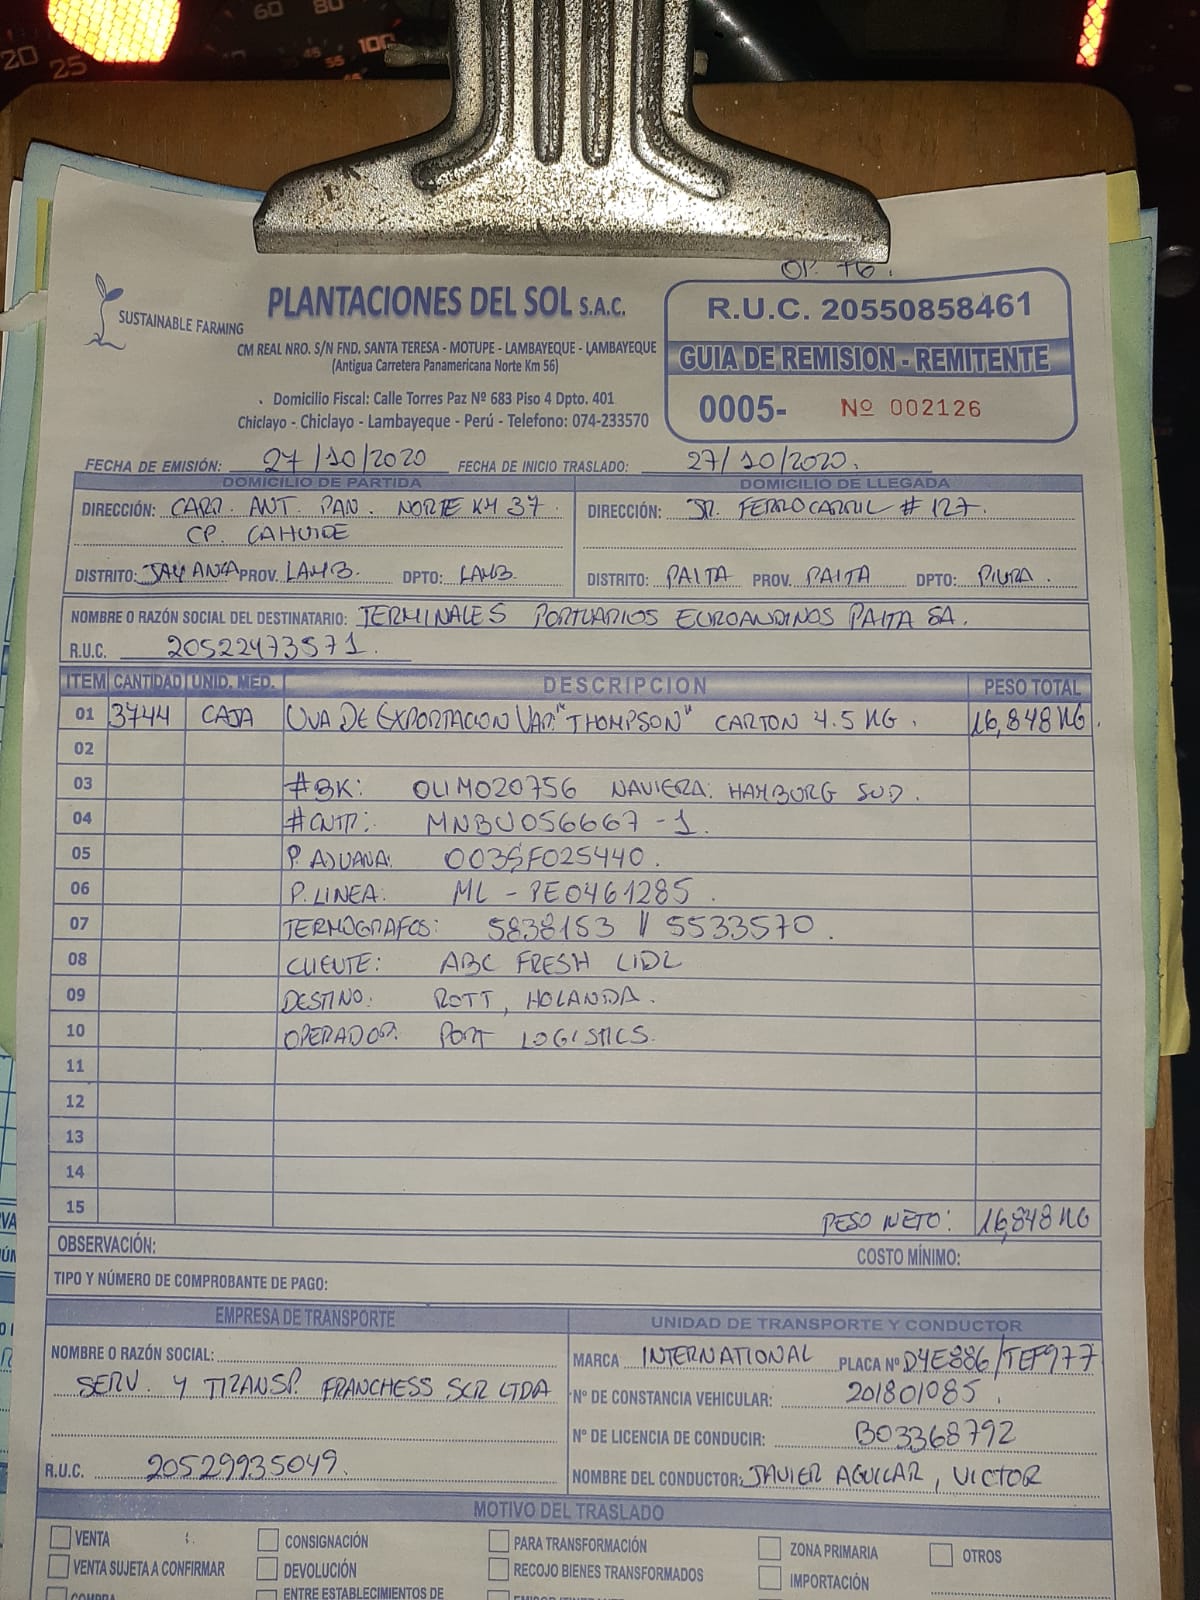 60 80
20 25 100
OP. 76.
SUSTAINABLE FARMING
PLANTACIONES DEL SOL S.A.C.
CM REAL NRO. S/N FND. SANTA TERESA - MOTUPE - LAMBAYEQUE - LAMBAYEQUE
(Antigua Carretera Panamericana Norte Km 56)
Domicilio Fiscal: Calle Torres Paz Nº 683 Piso 4 Dpto. 401
Chiclayo - Chiclayo - Lambayeque - Perú - Telefono: 074-233570
R.U.C. 20550858461
GUIA DE REMISION - REMITENTE
0005- Nº 002126
FECHA DE EMISIÓN: 27/10/2020 FECHA DE INICIO TRASLADO: 27/10/2020.
DOMICILIO DE PARTIDA DOMICILIO DE LLEGADA
DIRECCIÓN: CARR. ANT. PAN. NORTE KM 37 DIRECCIÓN: JR. FERROCARRIL # 127.
CP. CAHUIDE
DISTRITO: JAYANCA PROV. LAMB. DPTO: LAMB. DISTRITO: PAITA PROV. PAITA DPTO: PIURA.
NOMBRE O RAZÓN SOCIAL DEL DESTINATARIO: TERMINALES PORTUARIOS EUROANDINOS PAITA SA.
R.U.C. 20522473571.
ITEM CANTIDAD UNID. MED. DESCRIPCION PESO TOTAL
01 3744 CAJA UVA DE EXPORTACION VAR. "THOMPSON" CARTON 4.5 KG. 16,848 KG.
02
03 #BK: OLIM020756 NAVIERA: HAMBURG SUD.
04 #CNTR: MNBU056667-1.
05 P. ADUANA: 003SF025440.
06 P. LINEA: ML-PE0461285.
07 TERMOGRAFOS: 5838153 // 5533570.
08 CLIENTE: ABC FRESH LIDL
09 DESTINO: ROTT, HOLANDA.
10 OPERADOR: PORT LOGISTICS.
11
12
13
14
15 PESO NETO: 16,848 KG
OBSERVACIÓN: COSTO MÍNIMO:
TIPO Y NÚMERO DE COMPROBANTE DE PAGO:
EMPRESA DE TRANSPORTE UNIDAD DE TRANSPORTE Y CONDUCTOR
NOMBRE O RAZÓN SOCIAL: MARCA INTERNATIONAL PLACA Nº D4E886/TEF977
SERV. Y TRANSP. FRANCHESS SCR LTDA Nº DE CONSTANCIA VEHICULAR: 201801085.
Nº DE LICENCIA DE CONDUCIR: B03368792
R.U.C. 20529935049. NOMBRE DEL CONDUCTOR: JAVIER AGUILAR, VICTOR
MOTIVO DEL TRASLADO
VENTA CONSIGNACIÓN PARA TRANSFORMACIÓN ZONA PRIMARIA OTROS
VENTA SUJETA A CONFIRMAR DEVOLUCIÓN RECOJO BIENES TRANSFORMADOS IMPORTACIÓN
COMPRA ENTRE ESTABLECIMIENTOS DE